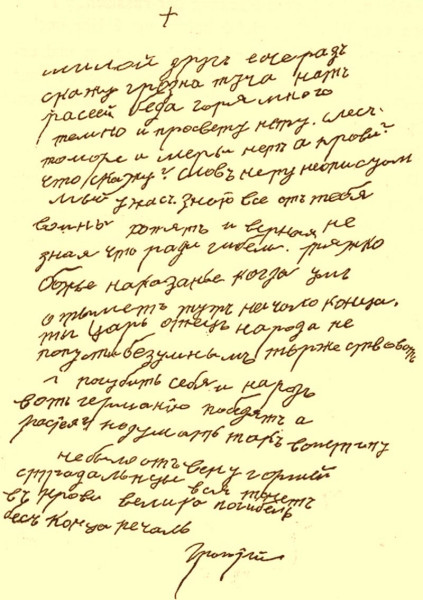 +
милой другъ есчеразъ
скажу грозна туча натъ
расеей беда горя много
темно и просвету нету. слесъ
томоре и меры нетъ а крови?
что скажу? словъ нету неописуом
мый ужасъ. знаю все отъ тебя
войны хотятъ и верная не
зная что ради гибели. тяжко
божье наказанье когда умъ
отыметъ тутъ начало конца.
ты царь отецъ народа не
попусти безумнымъ торжествовать
и погубить себя и народъ
вотъ германію победятъ а
расея подумать такъ воистину
небыло отъ веку горшей
страдальицы вся тонетъ
въ крови велика погибель
бесъ конца печаль
Григорій